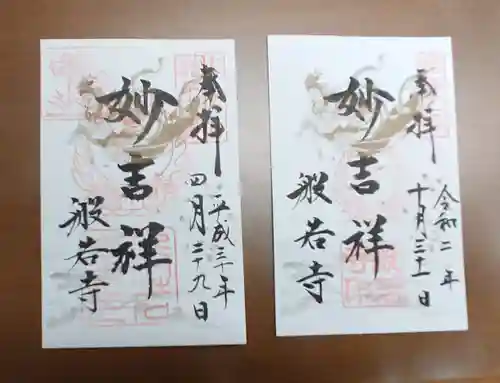 奉拝
平成三十年
四月二十九日
妙吉祥
般若寺
奉拝
令和二年
十月三十一日
妙吉祥
般若寺